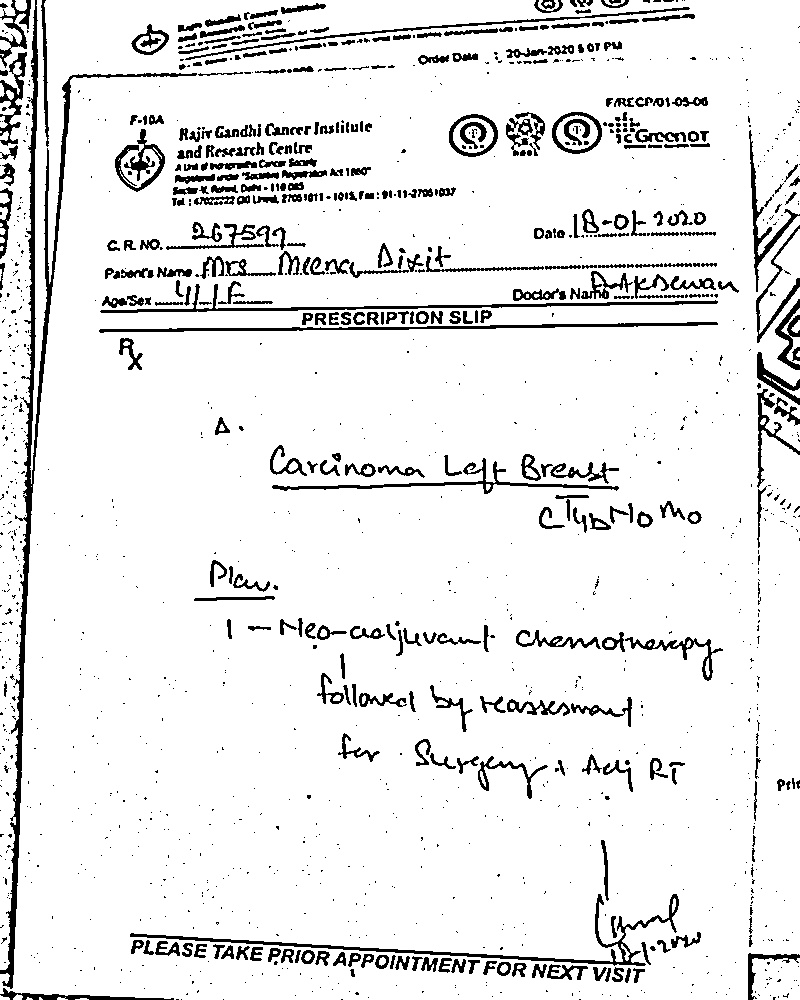 Rajiv Gandhi Cancer Institute
and Research Centre
Order Date : 20-Jan-2020 5 07 PM
F/RECP/01-05-06
F-10A
Rajiv Gandhi Cancer Institute
and Research Centre
A Unit of Indraprastha Cancer Society
Registered under "Societies Registration Act 1860"
Sector-V, Rohini, Delhi - 110 085
Tel : 47022222 (30 Lines), 27051011 - 1015, Fax : 91-11-27051037
GreenOT
C. R. NO. 267597
Date 18-01-2020
Patient's Name Mrs Meena Dixit
Age/Sex 41/F
Doctor's Name Dr AK Dewan
PRESCRIPTION SLIP
Rx
Δ.
Carcinoma Left Breast
cT4bN0M0
Plan.
1 - Neo-adjuvant chemotherapy
followed by reassesmant
for Surgery + Adj RT
18/1.2020
PLEASE TAKE PRIOR APPOINTMENT FOR NEXT VISIT